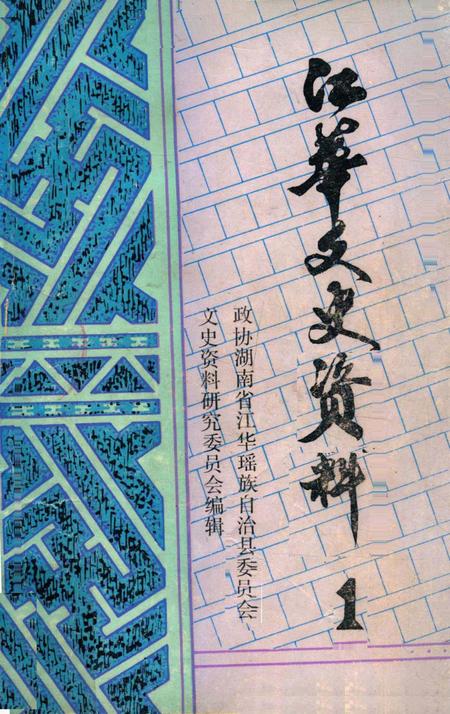 江華文史资料
1
政协湖南省江华瑶族自治县委员会
文史资料研究委员会编辑